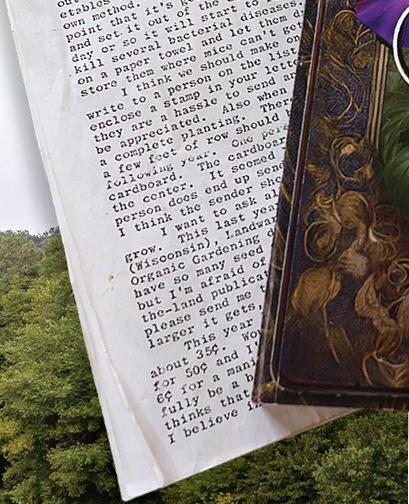 etables
own method. It's g
point that it's got
and set it out of the
day or so it will start
kill several bacterial diseases.
on a paper towel and let them
store them where mice can't ge
I think we should make o
write to a person on the list
enclose a stamp in your lette
they are a hassle to send an
be appreciated. Also when
a complete planting. Ther
a few feet of row should
following year. One per
cardboard. The cardboar
the center. It seemed
person does end up send
I think the sender sho
I want to ask al
grow. This last ye
(Wisconsin), Landwa
Organic Gardening
have so many seed
but I'm afraid of
the-land publicat
please send me t
larger it gets,
This year
about 35¢. Wo
for 50¢ and I
6¢ for a mani
fully be a b
thinks that
I believe i